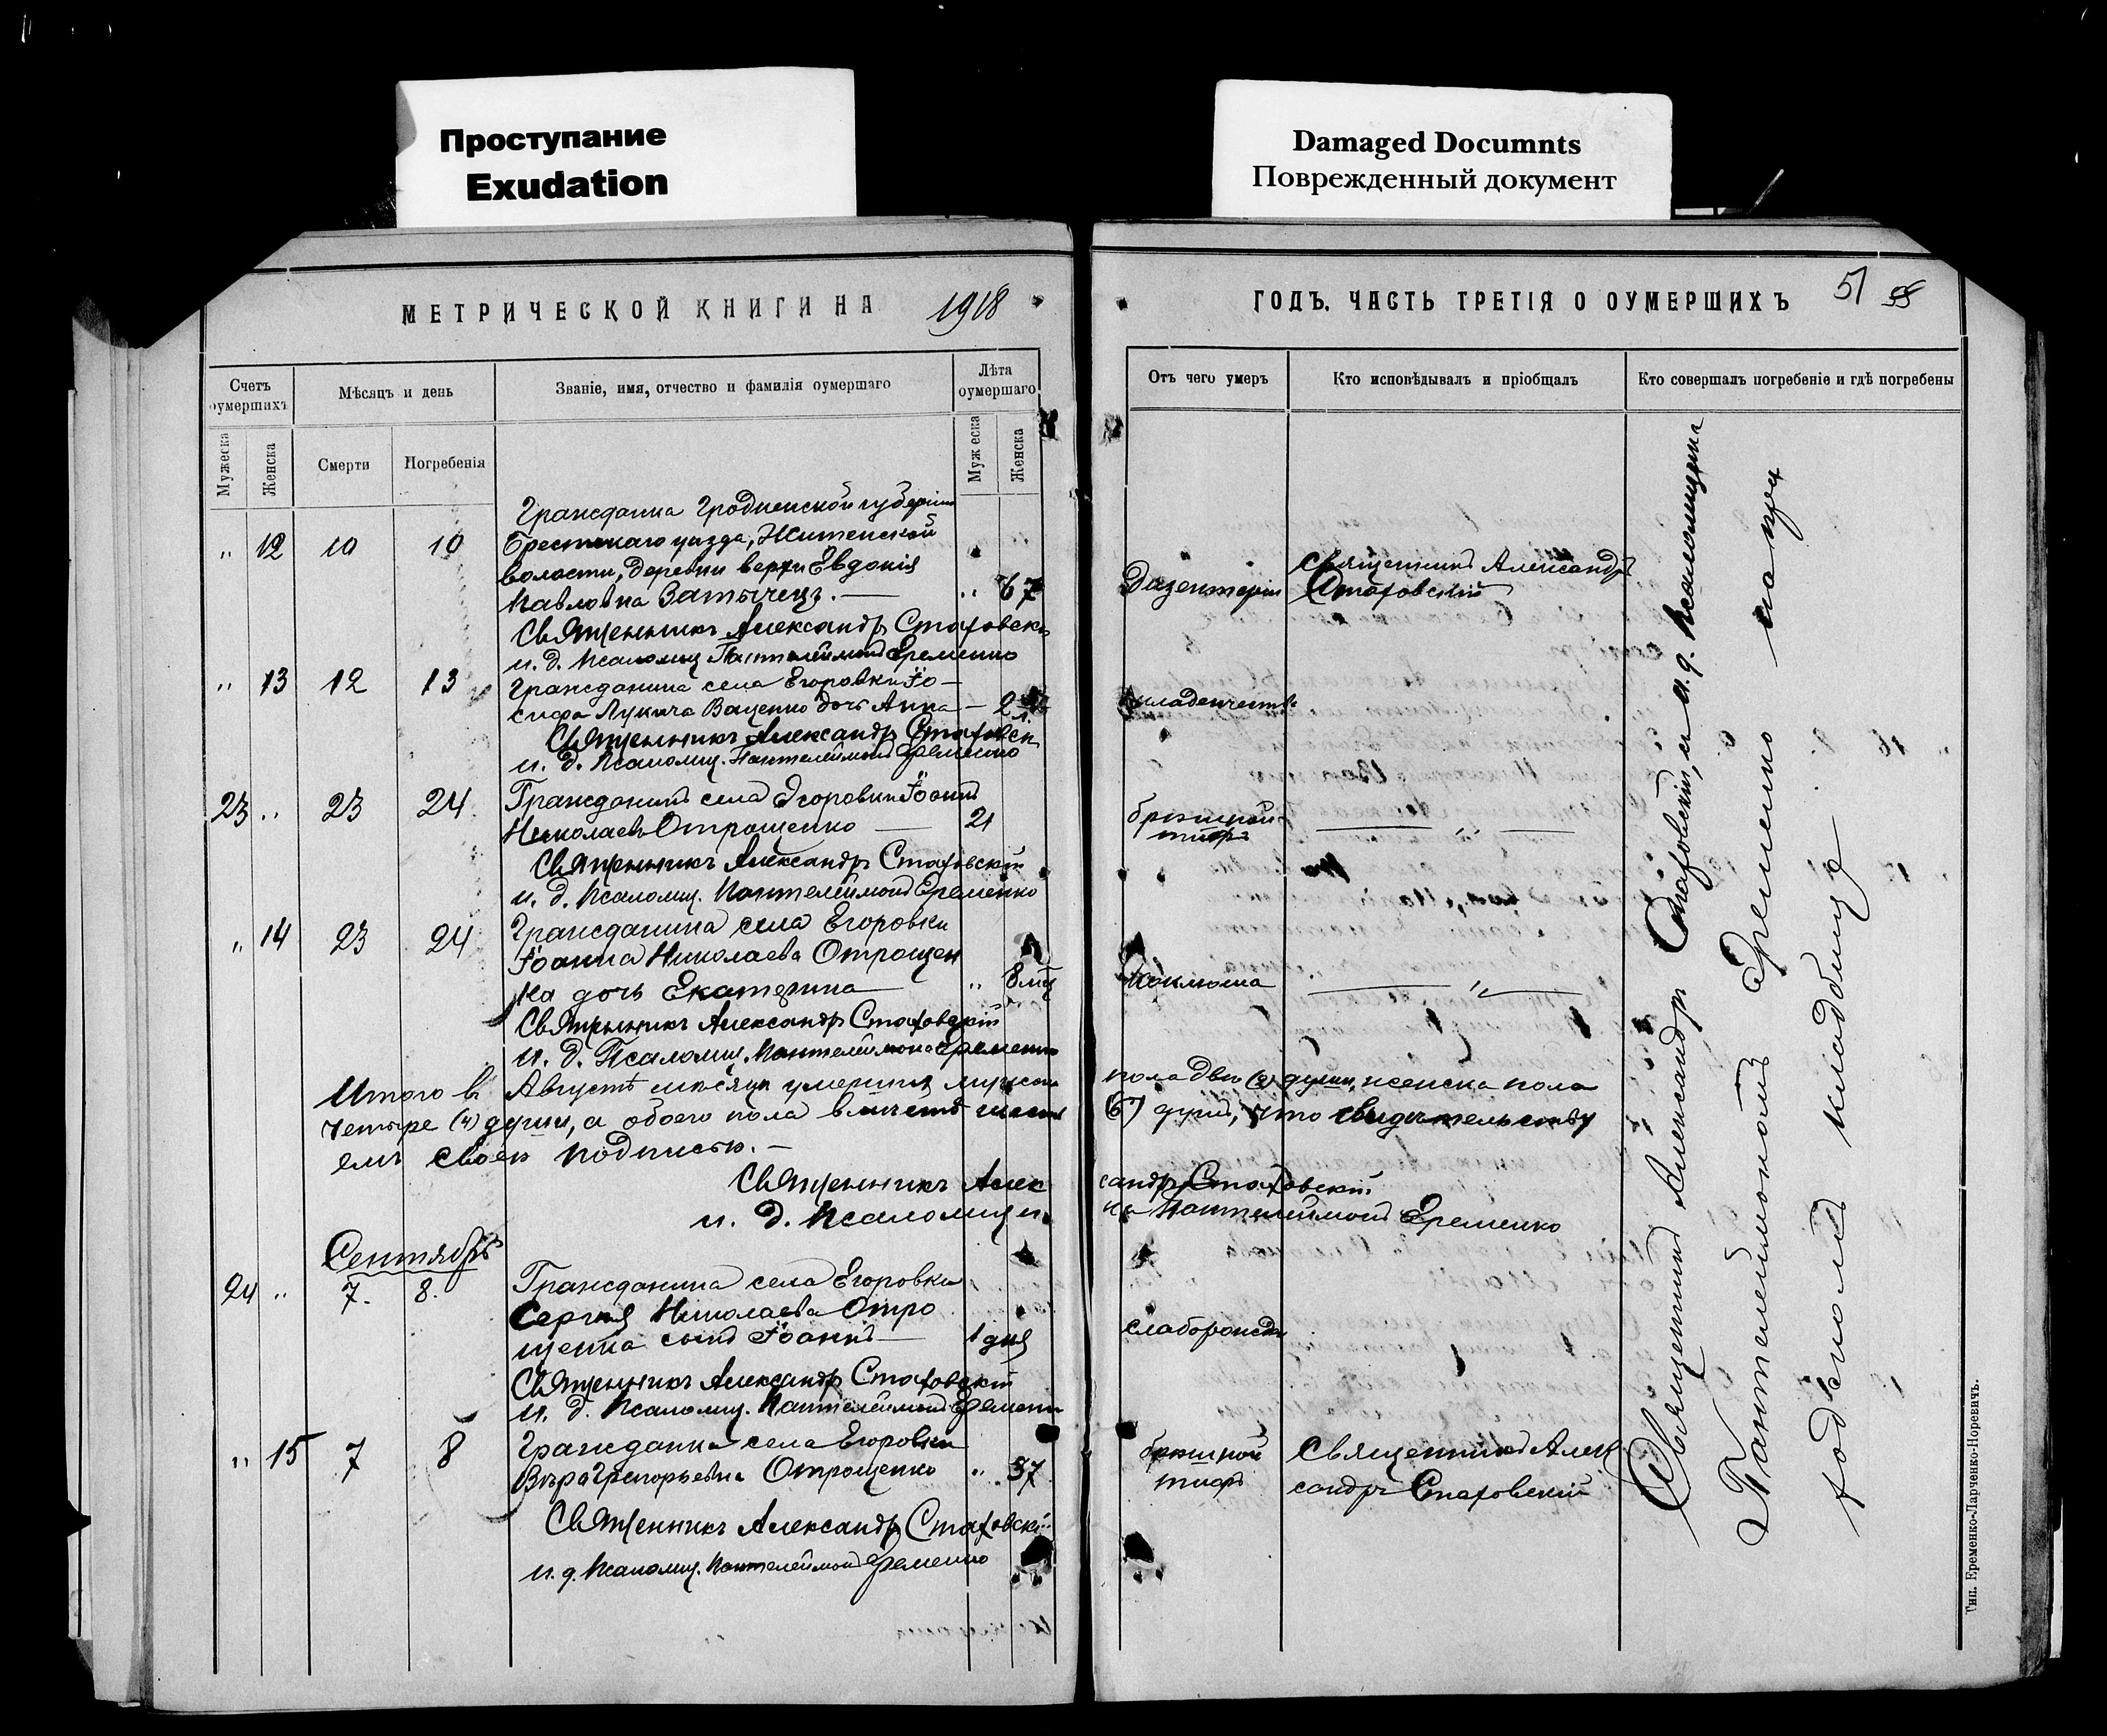 Проступание
Exudation
Damaged Documnts
Поврежденный документ
МЕТРИЧЕСКОЙ КНИГИ НА 1918
Счетъ оумершихъ
Мѣсяцъ и день
Званіе, имя, отчество и фамилія оумершаго
Лѣта оумершаго
Мужеска
Женска
Смерти
Погребенія
Мужеска
Женска
Гражданка Гродненской губерніи
„ 12 10 10 Брестскаго уѣзда, Житенской
волости, деревни Евдокія
Павловна „ 67
Священникъ Александръ Стаховскі
и. д. Псаломщ. Пантелеймонъ Еременко
„ 13 12 13 Гражданина села Егоровки Іо-
сифа Лукича Ваценко дочь Анна — 2
Священникъ Александръ Стаховск
и. д. Псаломщ. Пантелеймонъ Еременко
23 „ 23 24 Гражданинъ села Егоровки Іоаннъ
Николаевъ Отрощенко — 21
Священникъ Александръ Стаховскій
и. д. Псаломщ. Пантелеймонъ Еременко
„ 14 23 24 Гражданина села Егоровки
Іоанна Николаева Отрощен
ка дочь Екатерина „ 8 мц
Священникъ Александръ Стаховскій
и. д. Псаломщ. Пантелеймонъ Еременко
Итого въ Августѣ мѣсяцѣ умерших мужска
четыре (4) души, а обоего пола вмѣстѣ шесть
емъ своею подписью. —
Священникъ Алек
и. д. Псаломщи
Сентябрь
24 „ 7. 8. Гражданина села Егоровки
Сергия Николаева Отро
щенка сынъ Іоаннъ — 1 дня
Священникъ Александръ Стаховскій
и. д. Псаломщ. Пантелеймонъ Еременк
„ 15 7 8 Гражданка села Егоровки
Вѣра Григорьевна Отрощенко „ 37
Священникъ Александръ Стаховскі
и. д. Псаломщ. Пантелеймонъ Еременко
ГОДЪ. ЧАСТЬ ТРЕТІЯ О ОУМЕРШИХЪ
51
Отъ чего умеръ
Кто исповѣдывалъ и пріобщалъ
Кто совершалъ погребеніе и гдѣ погребены
Дизентерія
Священникъ Александръ
Стаховскій
младенчеств.
брюшной
тифъ — „ —
Коклюша — „ —
пола двѣ (2) души, женска пола
(6) душъ, что свидѣтельству
сандръ Стаховскій
къ Пантелеймонъ Еременко
слаборожден
брюшной
тифъ
Священникъ Алек
сандръ Стаховскій
Священникъ Александръ Стаховскій, съ и. д. Псаломщика
Пантелеймономъ Еременко на при
ходскомъ кладбищѣ
Тип. Еременко-Ларченко-Норевичъ.